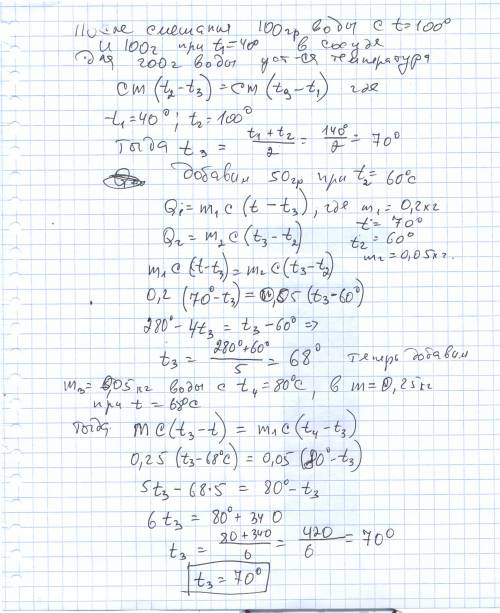 После смешания 100гр воды с t=100°
и 100г при t₁=40° в сосуде
для 200г воды уст-ся температура
cm(t₂-t₃)=cm(t₃-t₁) где
t₁=40°; t₂=100°
Тогда t₃ = (t₁+t₂)/2 = 140°/2 = 70°
Добавим 50гр при t₂=60°С
Q₁=m₁c(t-t₃), где m₁=0,2кг
t=70°
Q₂=m₂c(t₃-t₂)
t₂=60°
m₂=0,05кг.
m₁c(t-t₃)=m₂c(t₃-t₂)
0,2(70°-t₃)=0,05(t₃-60°)
280°-4t₃=t₃-60° =>
t₃=(280°+60°)/5=68° теперь добавим
m₃=0,05кг воды с t₄=80°С, в m=0,25кг
при t=68°С
Тогда mc(t₃-t)=m₁c(t₄-t₃)
0,25(t₃-68°С)=0,05(80°-t₃)
5t₃-68·5=80°-t₃
6t₃=80°+340
t₃=(80+340)/6=420/6=70°
t₃=70°